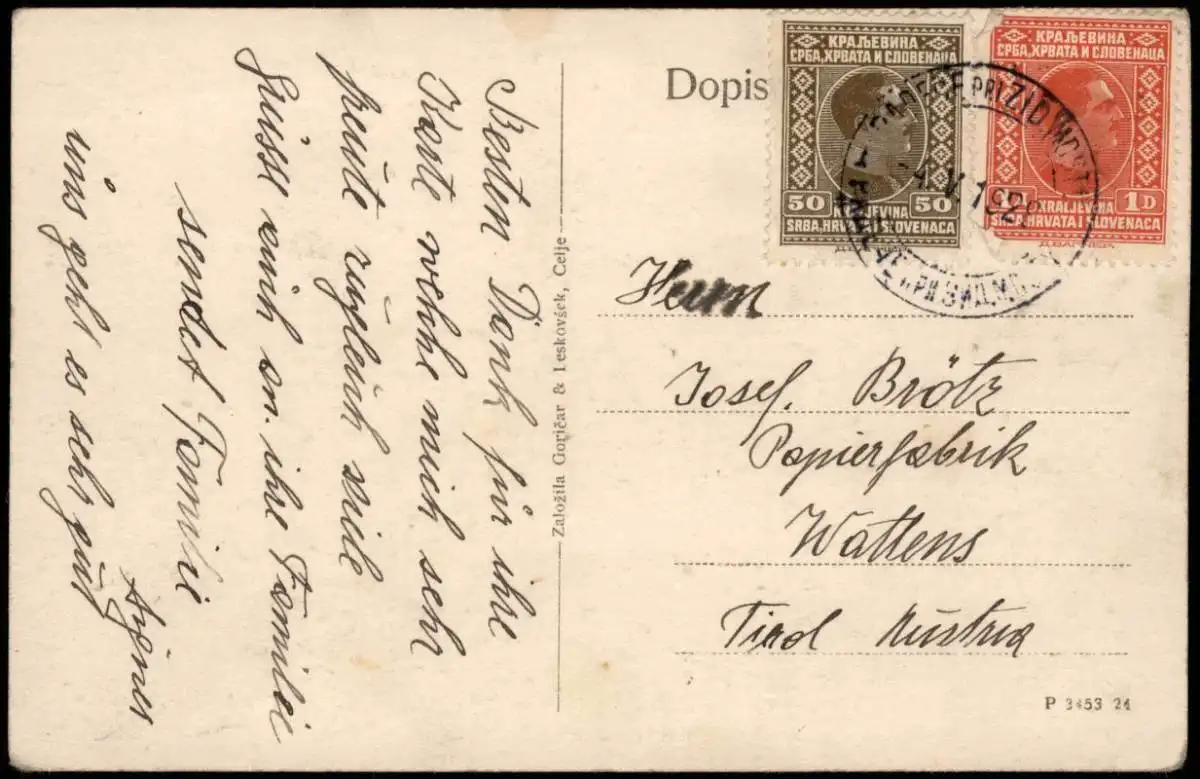 Dopis
КРАЉЕВИНА
СРБА, ХРВАТА И СЛОВЕНАЦА
50 50
KRALJEVINA
SRBA, HRVATA I SLOVENACA
КРАЉЕВИНА
СРБА, ХРВАТА И СЛОВЕНАЦА
1D
KRALJEVINA
SRBA, HRVATA I SLOVENACA
PRI ZID. MOSTU
V. 192
Besten Dank für ihre
Karte welche mich sehr
freute zugleich viele
Grüsse euch sm. ihre Familie
sendet Familie
Aigner
uns geht es sehr gut
Založila Goričar & Leskovšek, Celje
Herrn
Josef. Brötz
Papierfabrik
Wattens
Tirol Austria
P 3453 24